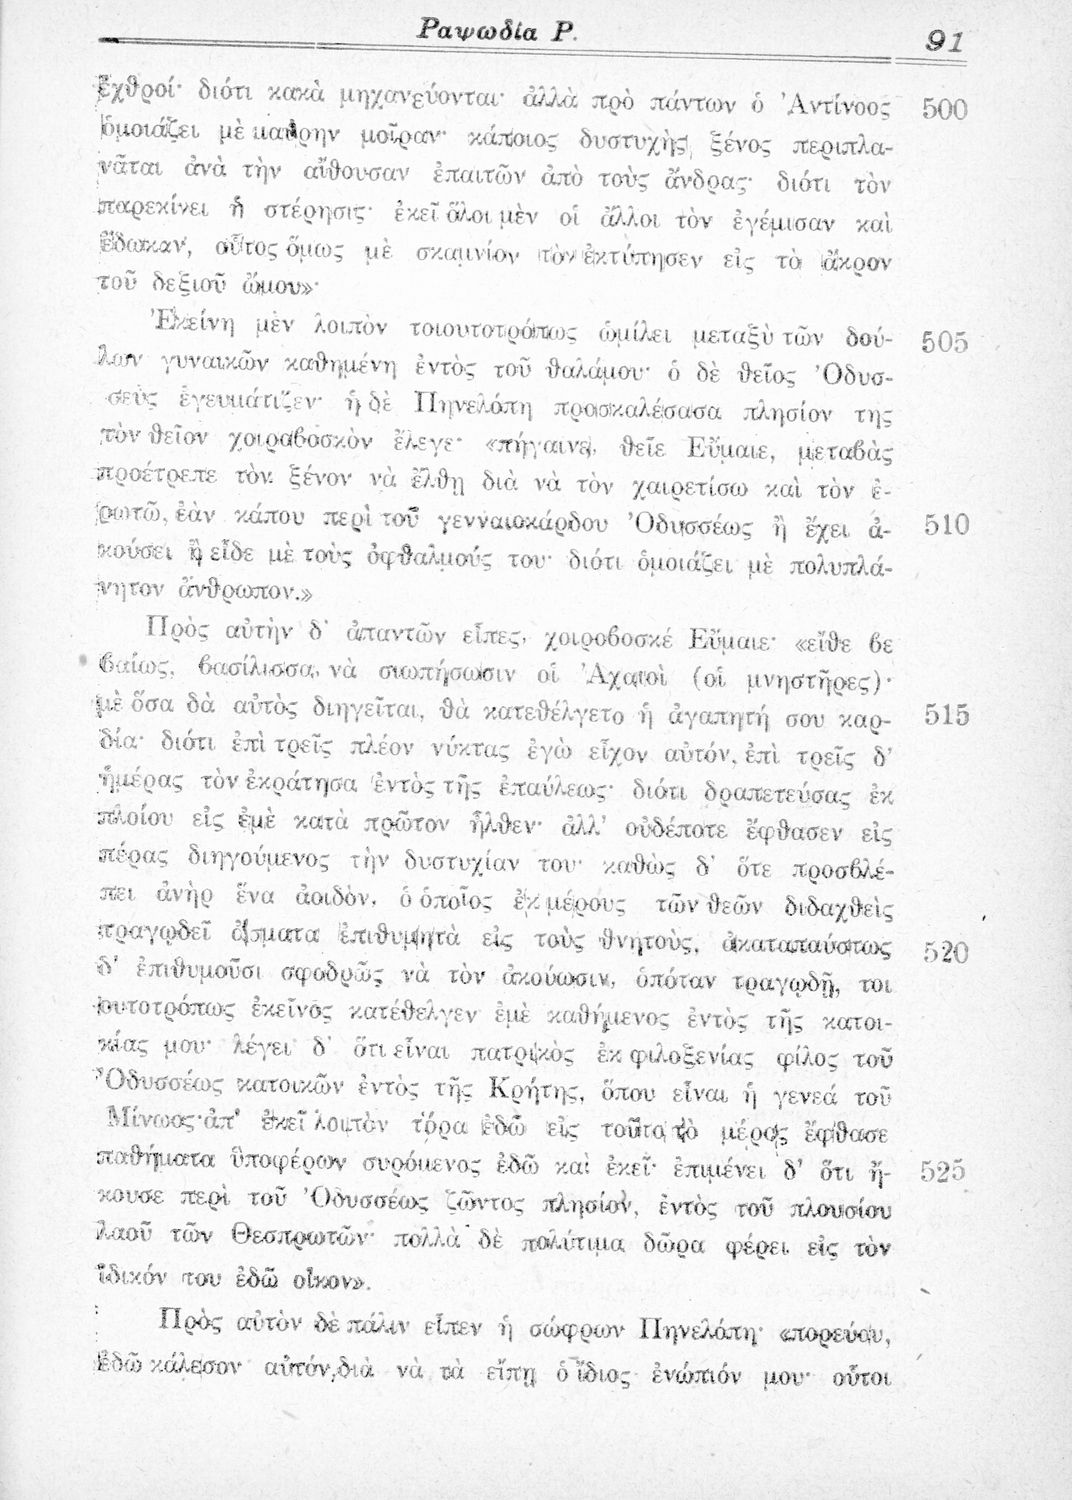 Ραψωδία Ρ.
91
ἐχθροί· διότι κακὰ μηχανεύονται· ἀλλὰ πρὸ πάντων ὁ Ἀντίνοος 500
ὁμοιάζει μὲ μαύρην μοῖραν· κάποιος δυστυχὴς ξένος περιπλα-
νᾶται ἀνὰ τὴν αἴθουσαν ἐπαιτῶν ἀπὸ τοὺς ἄνδρας· διότι τὸν
παρεκίνει ἡ στέρησις· ἐκεῖ ὅλοι μὲν οἱ ἄλλοι τὸν ἐγέμισαν καὶ
ἔδωκαν, οὗτος ὅμως μὲ σκαμνίον τὸν ἐκτύπησεν εἰς τὸ ἄκρον
τοῦ δεξιοῦ ὤμου»·
Ἐκείνη μὲν λοιπὸν τοιουτοτρόπως ὡμίλει μεταξὺ τῶν δού- 505
λων γυναικῶν καθημένη ἐντὸς τοῦ θαλάμου· ὁ δὲ θεῖος Ὀδυσ-
σεὺς ἐγευμάτιζεν· ἡ δὲ Πηνελόπη προσκαλέσασα πλησίον της
τὸν θεῖον χοιροβοσκὸν ἔλεγε· «πήγαινε, θεῖε Εὔμαιε, μεταβὰς
προέτρεπε τὸν ξένον νὰ ἔλθῃ διὰ νὰ τὸν χαιρετίσω καὶ τὸν ἐ-
ρωτῶ, ἐὰν κάπου περὶ τοῦ γενναιοκάρδου Ὀδυσσέως ἢ ἔχει ἀ- 510
κούσει ἢ εἶδε μὲ τοὺς ὀφθαλμούς του· διότι ὁμοιάζει μὲ πολυπλά-
νητον ἄνθρωπον.»
Πρὸς αὐτὴν δ' ἀπαντῶν εἶπες, χοιροβοσκέ Εὔμαιε· «εἴθε βε
βαίως, βασίλισσα, νὰ σιωπήσωσιν οἱ Ἀχαιοὶ (οἱ μνηστῆρες)·
μὲ ὅσα δὰ αὐτὸς διηγεῖται, θὰ κατεθέλγετο ἡ ἀγαπητή σου καρ- 515
δία· διότι ἐπὶ τρεῖς πλέον νύκτας ἐγὼ εἶχον αὐτόν, ἐπὶ τρεῖς δ'
ἡμέρας τὸν ἐκράτησα ἐντὸς τῆς ἐπαύλεως· διότι δραπετεύσας ἐκ
πλοίου εἰς ἐμὲ κατὰ πρῶτον ἦλθεν· ἀλλ' οὐδέποτε ἔφθασεν εἰς
πέρας διηγούμενος τὴν δυστυχίαν του· καθὼς δ' ὅτε προσβλέ-
πει ἀνὴρ ἕνα ἀοιδὸν, ὁ ὁποῖος ἐκ μέρους τῶν θεῶν διδαχθεὶς
τραγῳδεῖ ᾄσματα ἐπιθυμητὰ εἰς τοὺς θνητοὺς, ἀκαταπαύστως 520
δ' ἐπιθυμοῦσι σφοδρῶς νὰ τὸν ἀκούωσιν, ὁπόταν τραγῳδῇ, τοι
ουτοτρόπως ἐκεῖνος κατέθελγεν ἐμὲ καθήμενος ἐντὸς τῆς κατοι-
κίας μου· λέγει δ' ὅτι εἶναι πατρικὸς ἐκ φιλοξενίας φίλος τοῦ
Ὀδυσσέως κατοικῶν ἐντὸς τῆς Κρήτης, ὅπου εἶναι ἡ γενεά τοῦ
Μίνωος· ἀπ' ἐκεῖ λοιπὸν τώρα ἐδῶ εἰς τοῦτο τὸ μέρος ἔφθασε
παθήματα ὑποφέρων συρόμενος ἐδῶ καὶ ἐκεῖ· ἐπιμένει δ' ὅτι ἤ- 525
κουσε περὶ τοῦ Ὀδυσσέως ζῶντος πλησίον, ἐντὸς τοῦ πλουσίου
λαοῦ τῶν Θεσπρωτῶν· πολλὰ δὲ πολύτιμα δῶρα φέρει εἰς τὸν
ἰδικόν του ἐδῶ οἶκον».
Πρὸς αὐτὸν δὲ πάλιν εἶπεν ἡ σώφρων Πηνελόπη· «πορεύου,
ἐδῶ κάλεσον αὐτόν, διὰ νὰ τὰ εἴπῃ ὁ ἴδιος ἐνώπιόν μου· οὗτοι